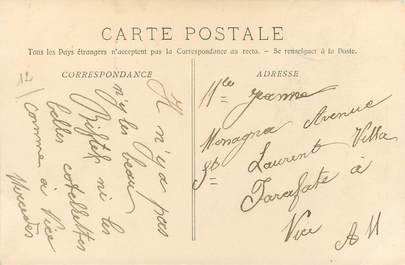 CARTE POSTALE
Tous les Pays étrangers n'acceptent pas la Correspondance au recto. — Se renseigner à la Poste.
CORRESPONDANCE
12
Il n'y a pas
n'y les beau
Biftek ni les
belles cotellettes
comme à Nice
Mercedes
ADRESSE
Mlle Jeanne
Avenue
St Laurent Villa
à
Nice
AM